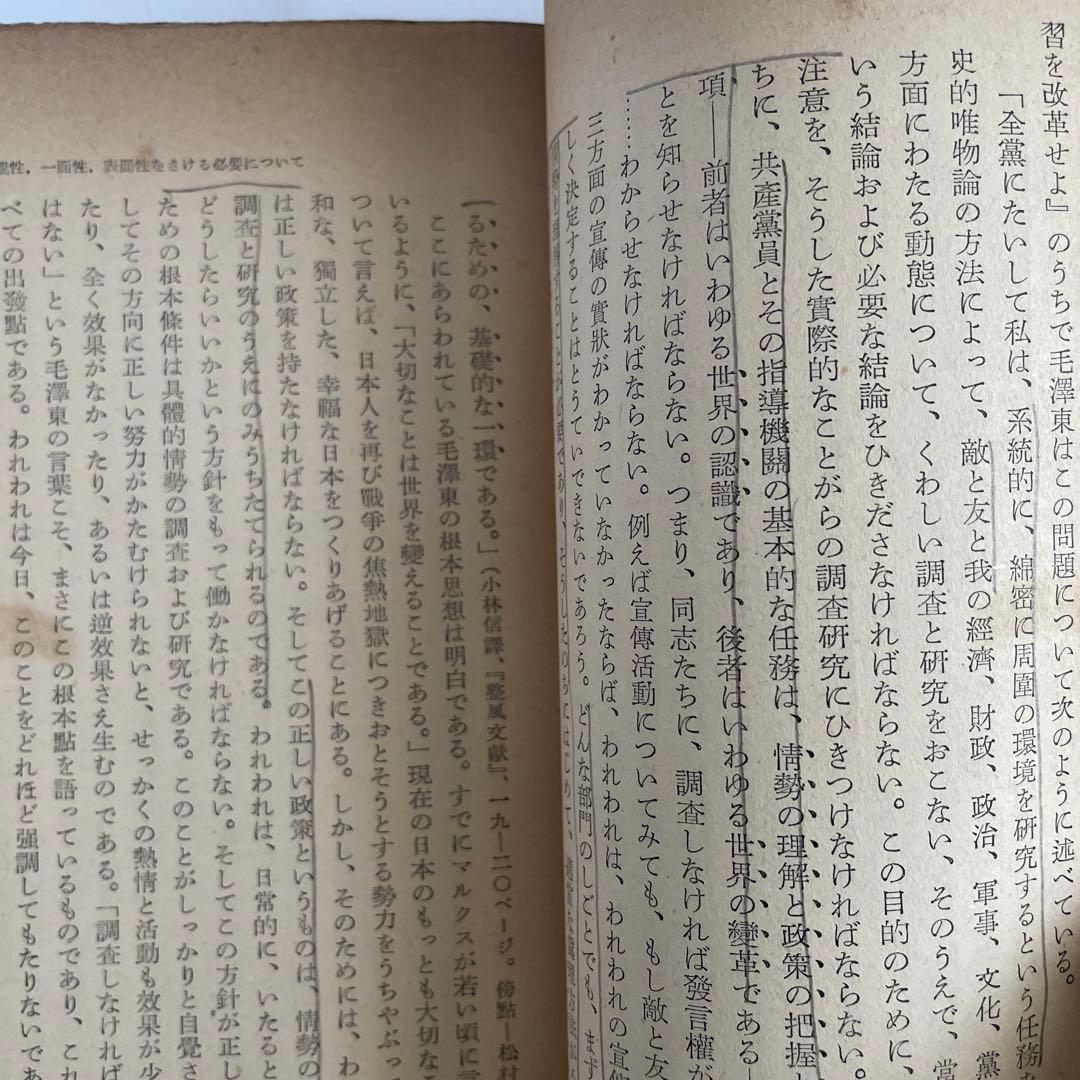 習を改革せよ』のうちで毛澤東はこの問題について次のように述べている。
「全黨にたいして私は、系統的に、綿密に周圍の環境を研究するという任務を
史的唯物論の方法によって、敵と友と我の經濟、財政、政治、軍事、文化、黨
方面にわたる動態について、くわしい調査と研究をおこない、そのうえで、當
いう結論および必要な結論をひきださなければならない。この目的のために、
注意を、そうした實際的なことがらの調査研究にひきつけなければならない。
ちに、共産黨員とその指導機關の基本的な任務は、情勢の理解と政策の把握と
項——前者はいわゆる世界の認識であり、後者はいわゆる世界の變革である—
とを知らせなければならない。つまり、同志たちに、調査しなければ發言權が
……わからせなければならない。例えば宣傳活動についてみても、もし敵と友
三方面の宣傳の實狀がわかっていなかったならば、われわれは、われわれの宣傳
しく決定することはとうていできないであろう。どんな部門のしごとでも、まず
することが必要であり、そうしたのちにはじめて、
親性，一面性，表面性をさける必要について
るための、基礎的な一環である。」（小林信譯、『整風文獻』、一九—二〇ページ。傍點—松村
ここにあらわれている毛澤東の根本思想は明白である。すでにマルクスが若い頃に言
いるように、「大切なことは世界を變えることである。」現在の日本のもっとも大切なこ
ついて言えば、日本人を再び戰爭の焦熱地獄につきおとそうとする勢力をうちやぶっ
和な、獨立した、幸福な日本をつくりあげることにある。しかし、そのためには、わ
は正しい政策を持たなければならない。そしてこの正しい政策というものは、情勢の
調査と研究のうえにのみうちたてられるのである。われわれは、日常的に、いたると
どうしたらいいかという方針をもって働かなければならない。そしてこの方針が正し
ための根本條件は具體的情勢の調査および研究である。このことがしっかりと自覺さ
してその方向に正しい努力がかたむけられないと、せっかくの熱情と活動も效果が少
たり、全く效果がなかったり、あるいは逆效果さえ生むのである。「調査しなければ
はない」という毛澤東の言葉こそ、まさにこの根本點を語っているものであり、これ
べての出發點である。われわれは今日、このことをどれほど强調してもたりないであ